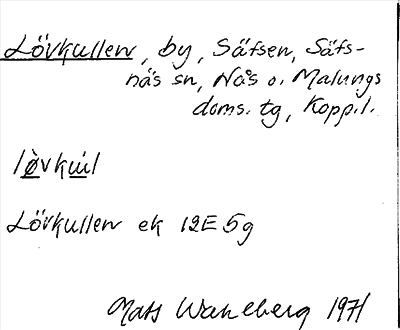 Lövkullen, by, Säfsen, Säfs-
näs sn, Nås o. Malungs
doms. tg, Koppl.
lø̀vku̇l
Lövkullen ek 12E 5g
Mats Wahlberg 1971